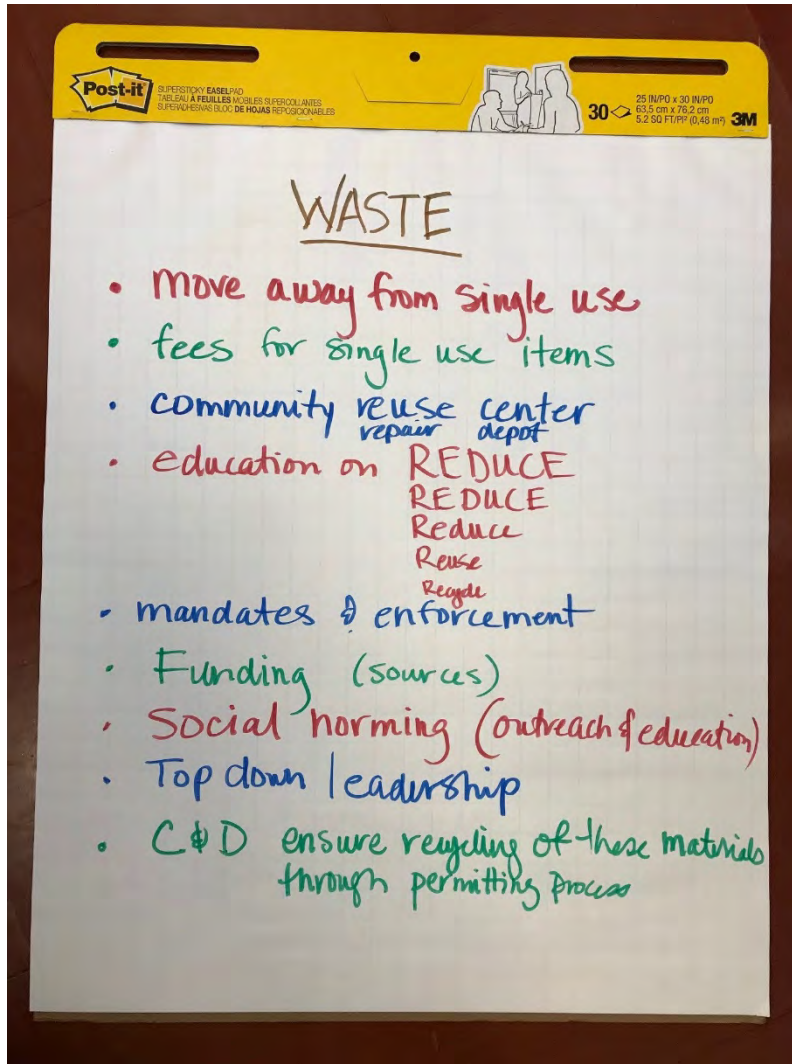 Post-it SUPERSTICKY EASEL PAD
TABLEAU À FEUILLES MOBILES SUPERCOLLANTES
SUPERADHESIVAS BLOC DE HOJAS REPOSICIONABLES
30
25 IN/PO x 30 IN/PO
63,5 cm x 76,2 cm
5.2 SQ FT/PI² (0,48 m²)
3M
WASTE
• move away from single use
• fees for single use items
• community reuse center
repair depot
• education on REDUCE
REDUCE
Reduce
Reuse
Recycle
• mandates & enforcement
• Funding (sources)
• Social norming (outreach & education)
• Top down leadership
• C&D ensure recycling of these materials
through permitting process